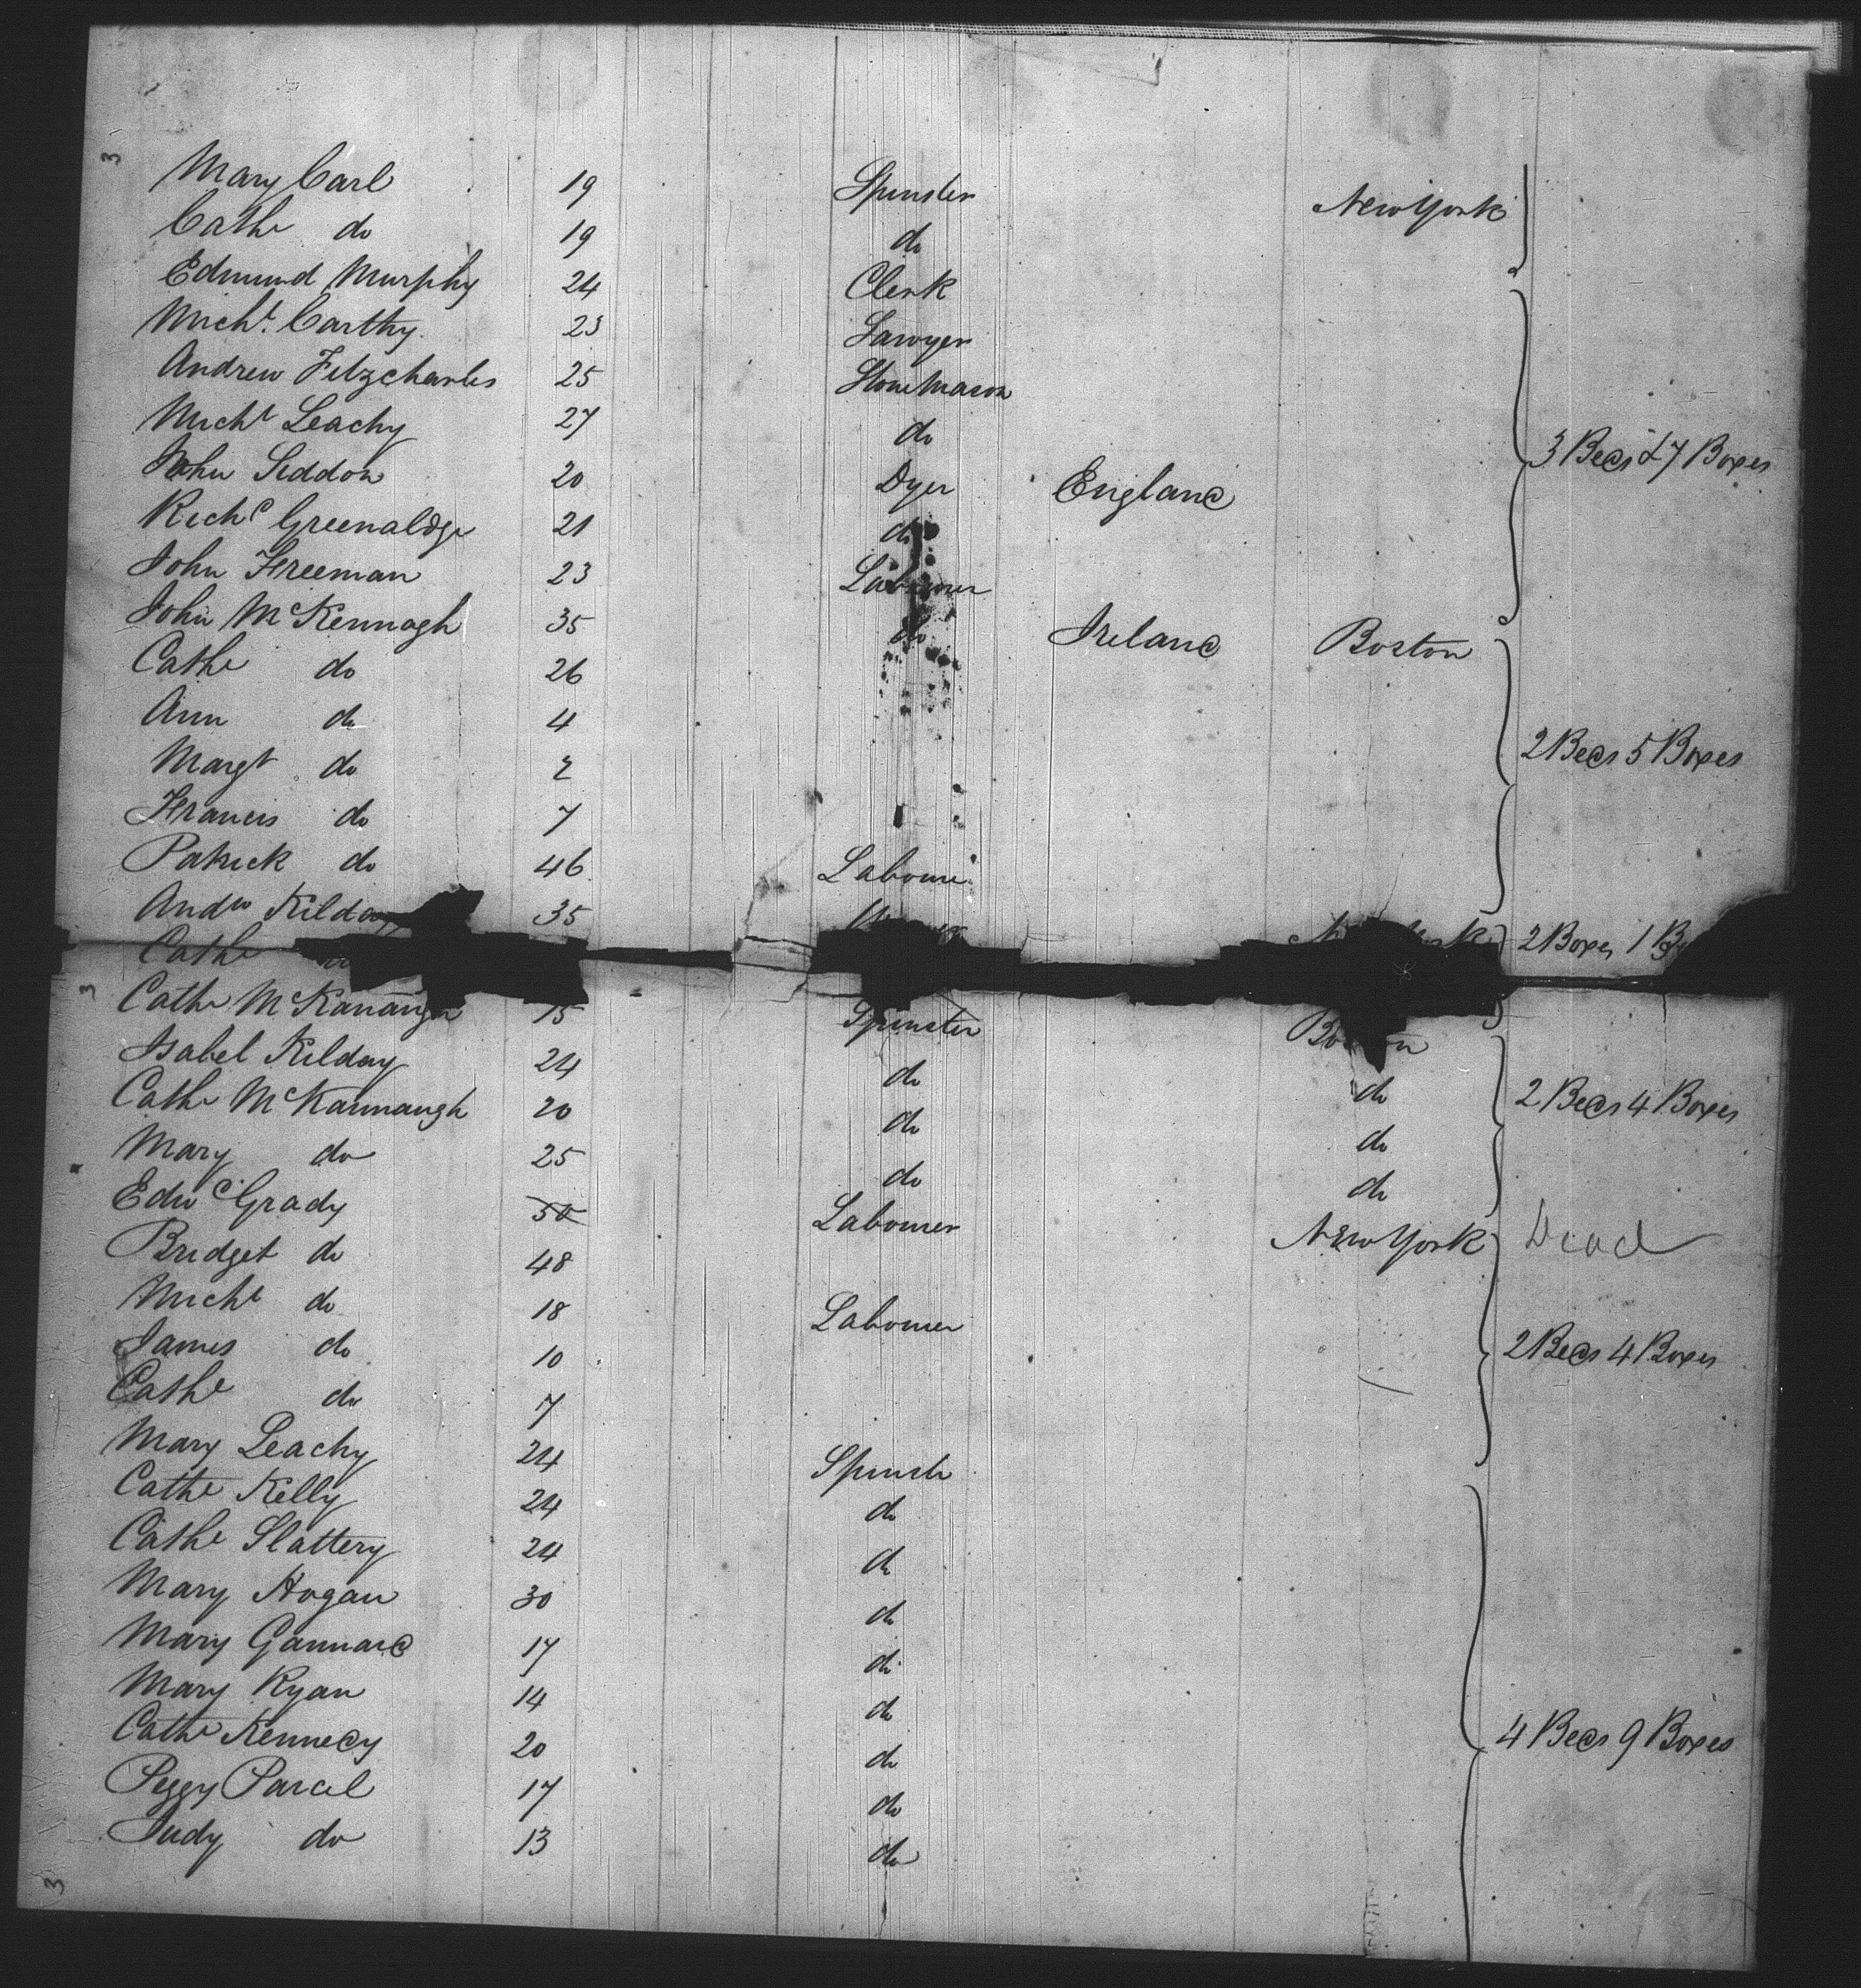 3
Mary Carl 19 Spinster New York
Cathe do 19 do
Edmund Murphy 24 Clerk
Michl. Carthy 23 Sawyer
Andrew Fitzcharles 25 Stone Mason
Michl Leachy 27 do
John Seddon 20 Dyer England
Richd Greenaldge 21 do
3 Beds & 7 Boxes
John Freeman 23 Labourer
John McKennagh 35 do Ireland Boston
Cathe do 26
Ann do 4
Margt do 2
2 Beds 5 Boxes
Francis do 7
Patrick do 46 Labourer
Andw Kilday 35 2 Boxes 1
Cathe
3
Cathe McKanaugh 15 Spinster Boston
Isabel Kilday 24 do do
2 Beds 4 Boxes
Cathe McKannaugh 20 do do
Mary do 25 do do
Edwd Grady 50 Labourer New York Dead
Bridget do 48
Michl do 18 Labourer
James do 10
2 Beds 4 Boxes
Cathe do 7
Mary Leachy 24 Spinstr
Cathe Kelly 24 do
Cathe Slattery 24 do
Mary Hogan 30 do
Mary Gannard 17 do
Mary Ryan 14 do
Cathe Kennedy 20 do
4 Beds 9 Boxes
Peggy Parcel 17 do
Judy do 13 do
3